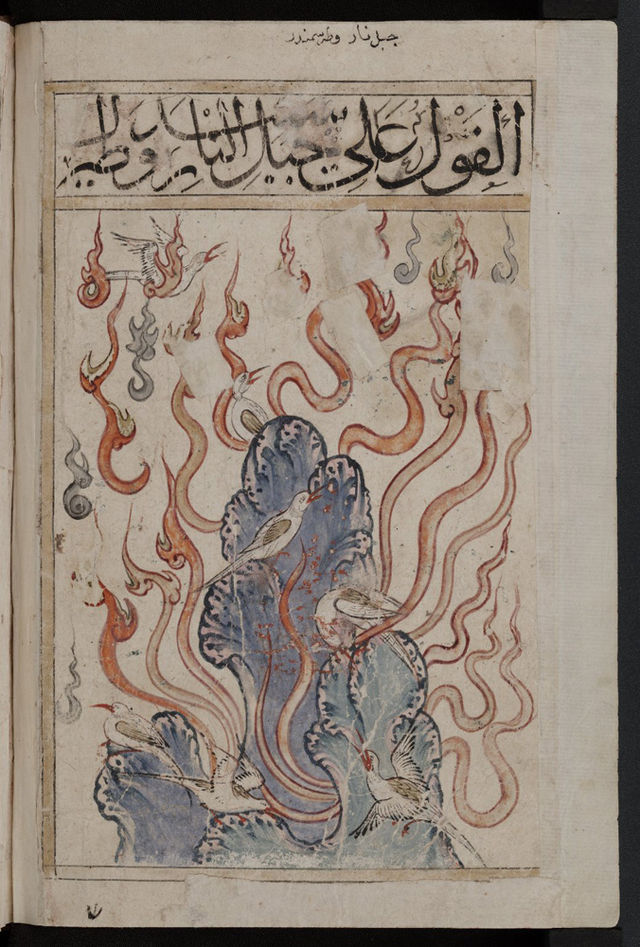 جبل نار وطير سمندر
القول على جبل النار وطير